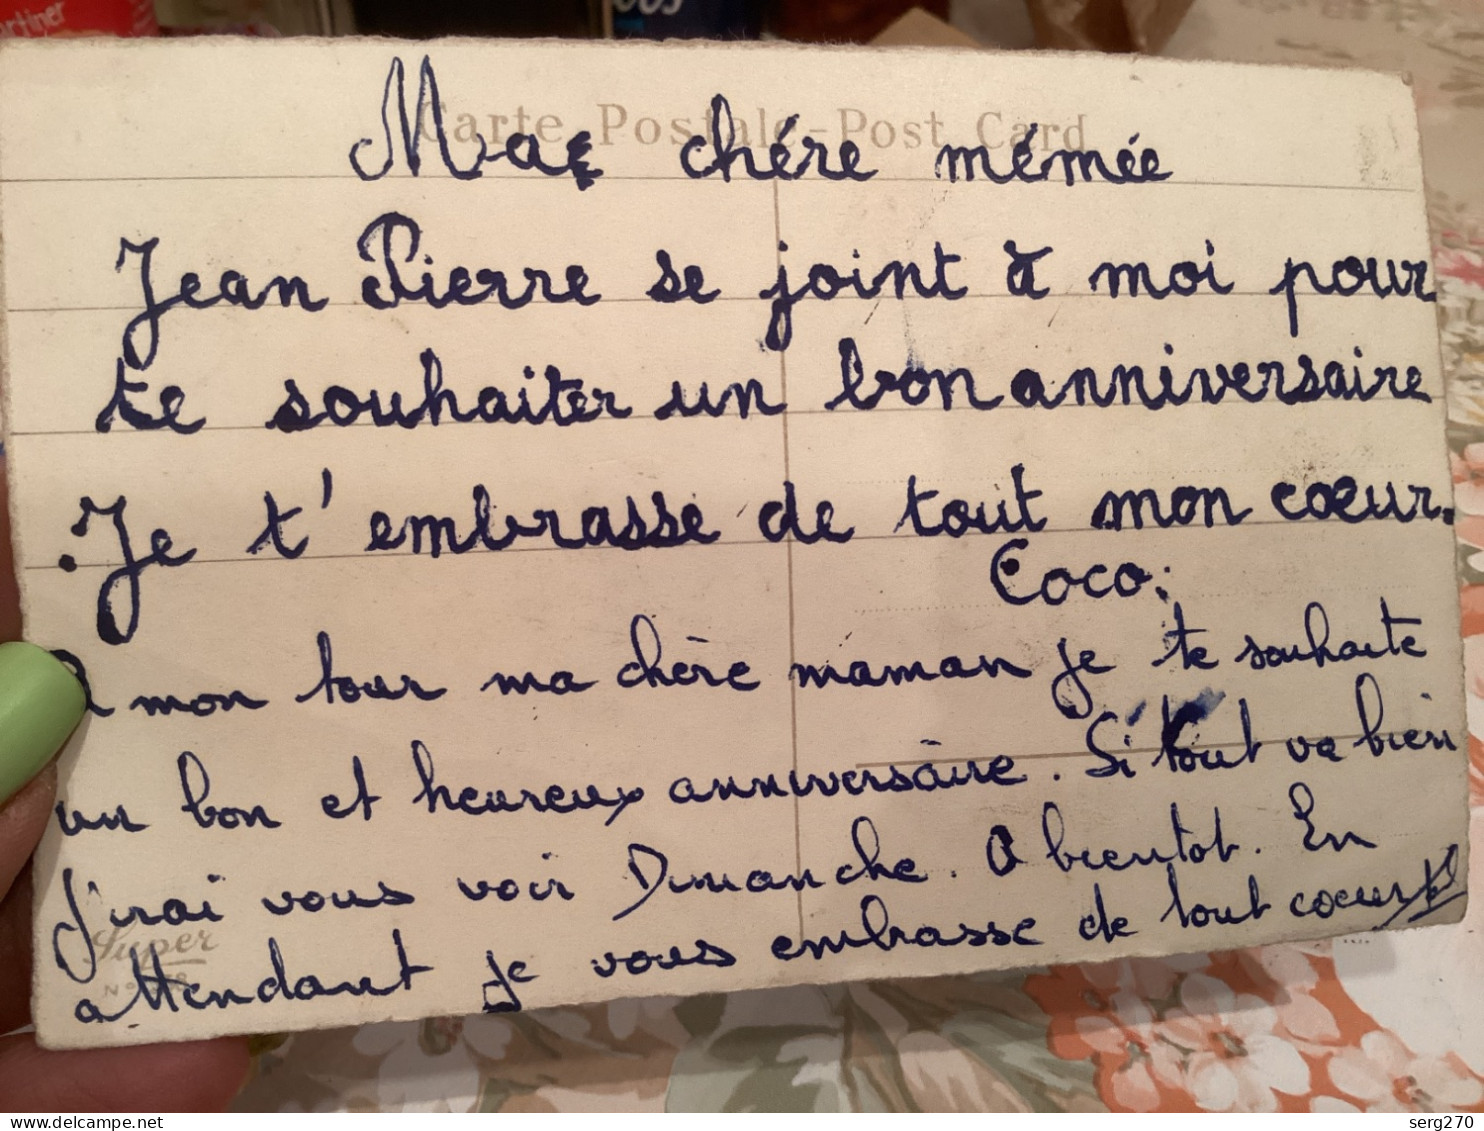 Carte Postale - Post Card
Ma chére mémée
Jean Pierre se joint à moi pour
te souhaiter un bon anniversaire
. Je t'embrasse de tout mon cœur.
Coco.
A mon tour ma chère maman je te souhaite
un bon et heureux anniversaire. Si tout va bien
J'irai vous voir Dimanche. A bientot. En
attendant je vous embrasse de tout coeur
Super
N°
delcampe.net
serg270